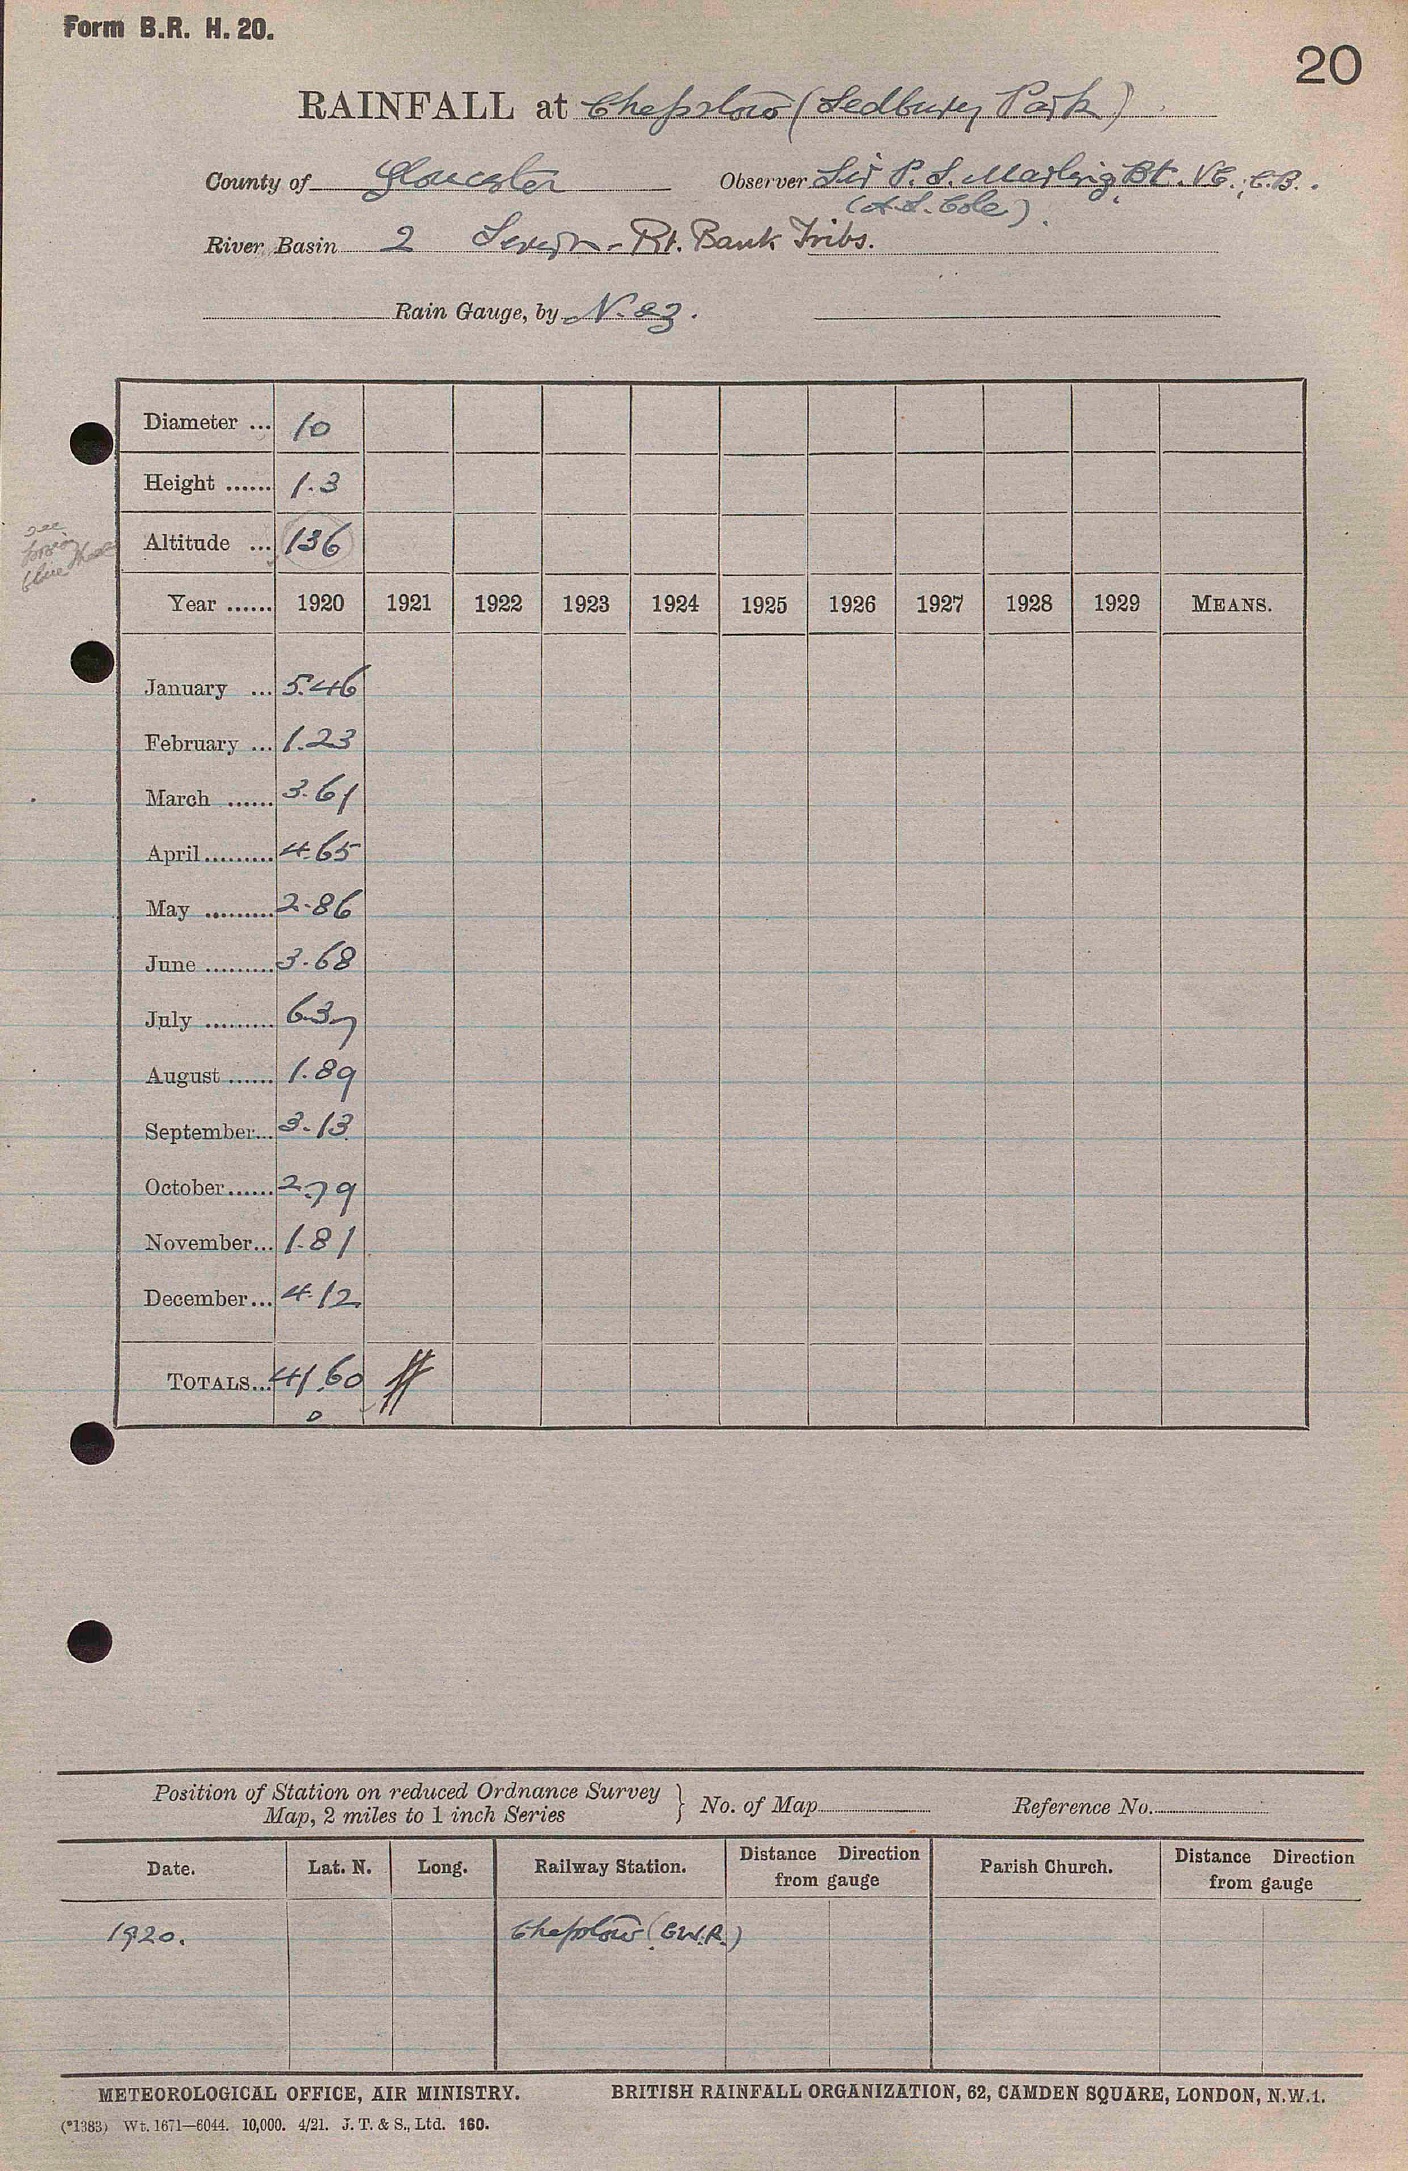 Form B.R. H. 20.
20
RAINFALL at Chepstow (Sedbury Park)
County of Gloucester Observer Sir P. S. Marling, Bt. V.C., C.B.
(A.S. Cole).
River Basin 2 Severn - Rt. Bank Tribs.
Rain Gauge, by N. & Z.
Diameter ... 10
Height ...... 1.3
see
Altitude ... 136
Year ...... 1920 1921 1922 1923 1924 1925 1926 1927 1928 1929 MEANS.
January ... 5.46
February ... 1.23
March ...... 3.61
April ......... 4.65
May ......... 2.86
June ......... 3.68
July ......... 6.37
August ...... 1.89
September... 3.13
October ...... 2.79
November... 1.81
December... 4.12
TOTALS... 41.60
0
Position of Station on reduced Ordnance Survey
Map, 2 miles to 1 inch Series } No. of Map Reference No.
Date. Lat. N. Long. Railway Station. Distance Direction from gauge Parish Church. Distance Direction from gauge
1920. Chepstow (G.W.R.)
METEOROLOGICAL OFFICE, AIR MINISTRY. BRITISH RAINFALL ORGANIZATION, 62, CAMDEN SQUARE, LONDON, N.W.1.
(*1383) Wt. 1671—6044. 10,000. 4/21. J. T. & S., Ltd. 160.